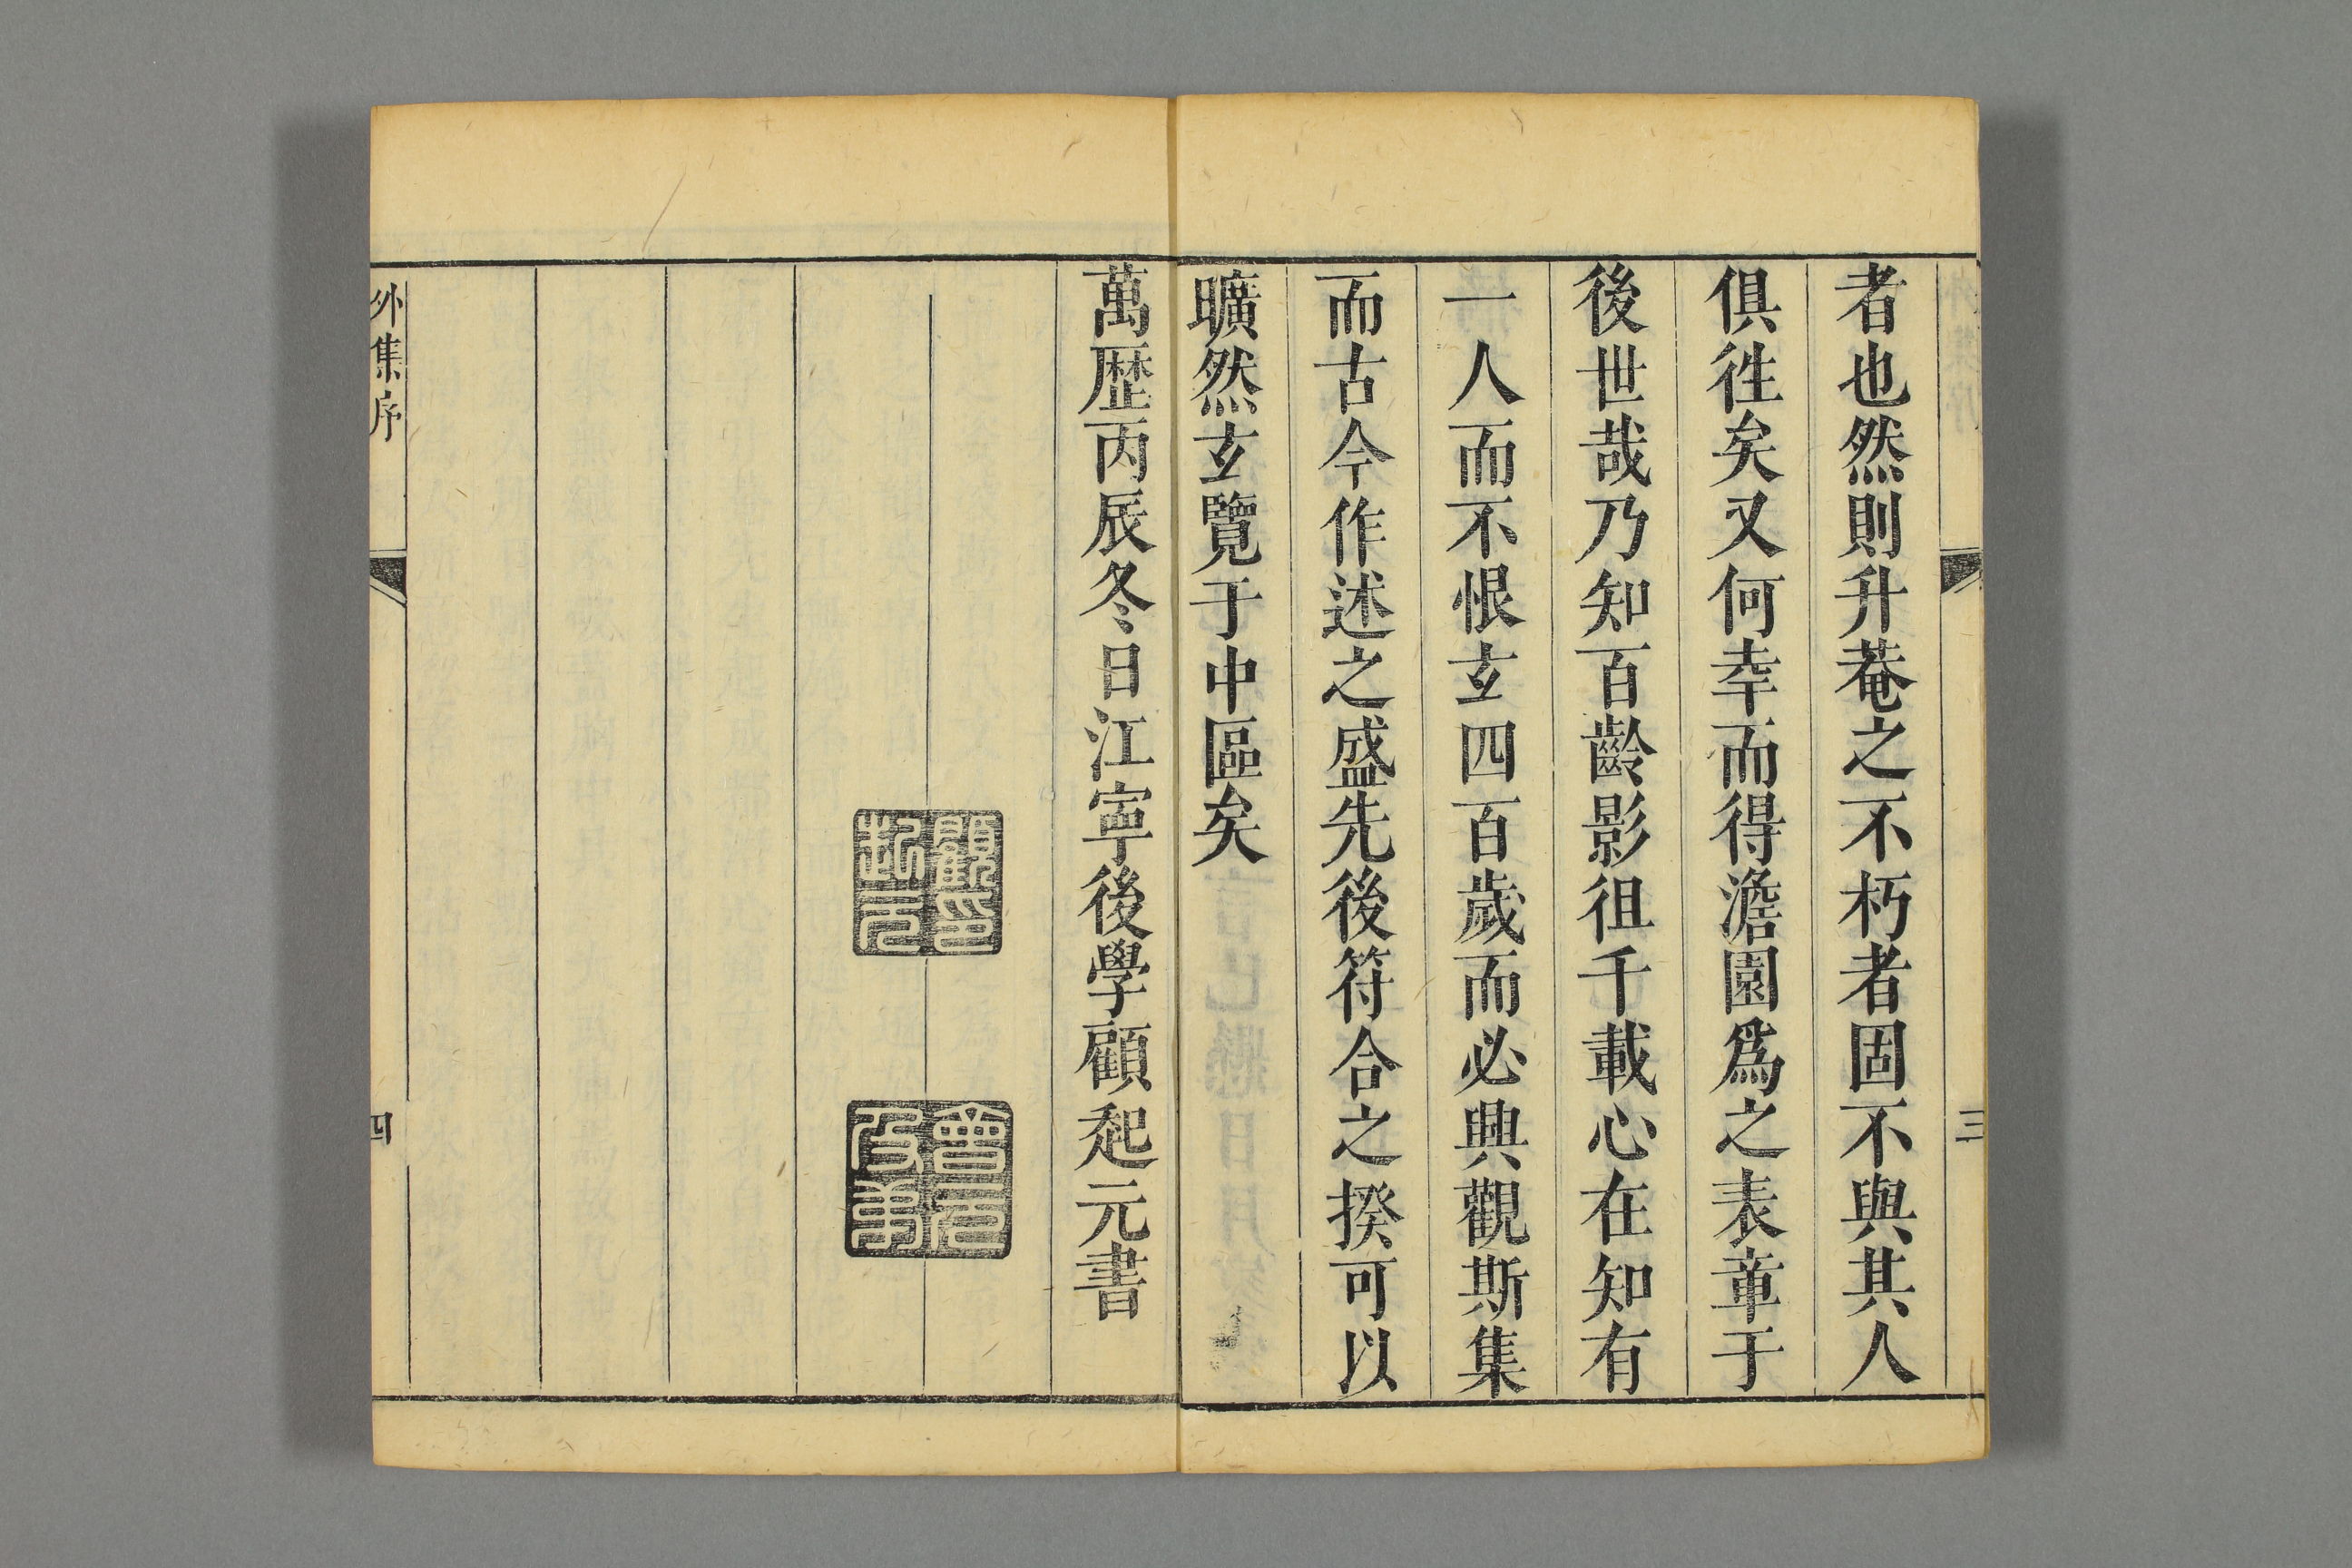 三
者也然則升菴之不朽者固不與其人
俱徃矣又何幸而得澹園爲之表章于
後世哉乃知百齡影徂千載心在知有
一人而不恨玄四百歲而必興觀斯集
而古今作述之盛先後符合之揆可以
曠然玄覽于中區矣
萬歷丙辰冬日江寧後學顧起元書
顧起元印
外集序
四